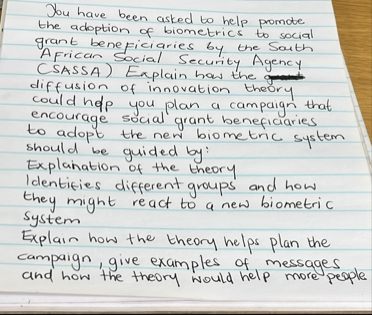 You have been asked to help promote
the adoption of biometrics to social
grant beneficiaries by the South
African Social Security Agency
(SASSA) Explain how the
diffusion of innovation theory
could help you plan a campaign that
encourage social grant beneficiaries
to adopt the new biometric system
should be guided by:
Explanation of the theory
Identifies different groups and how
they might react to a new biometric
system
Explain how the theory helps plan the
campaign, give examples of messages
and how the theory would help more people